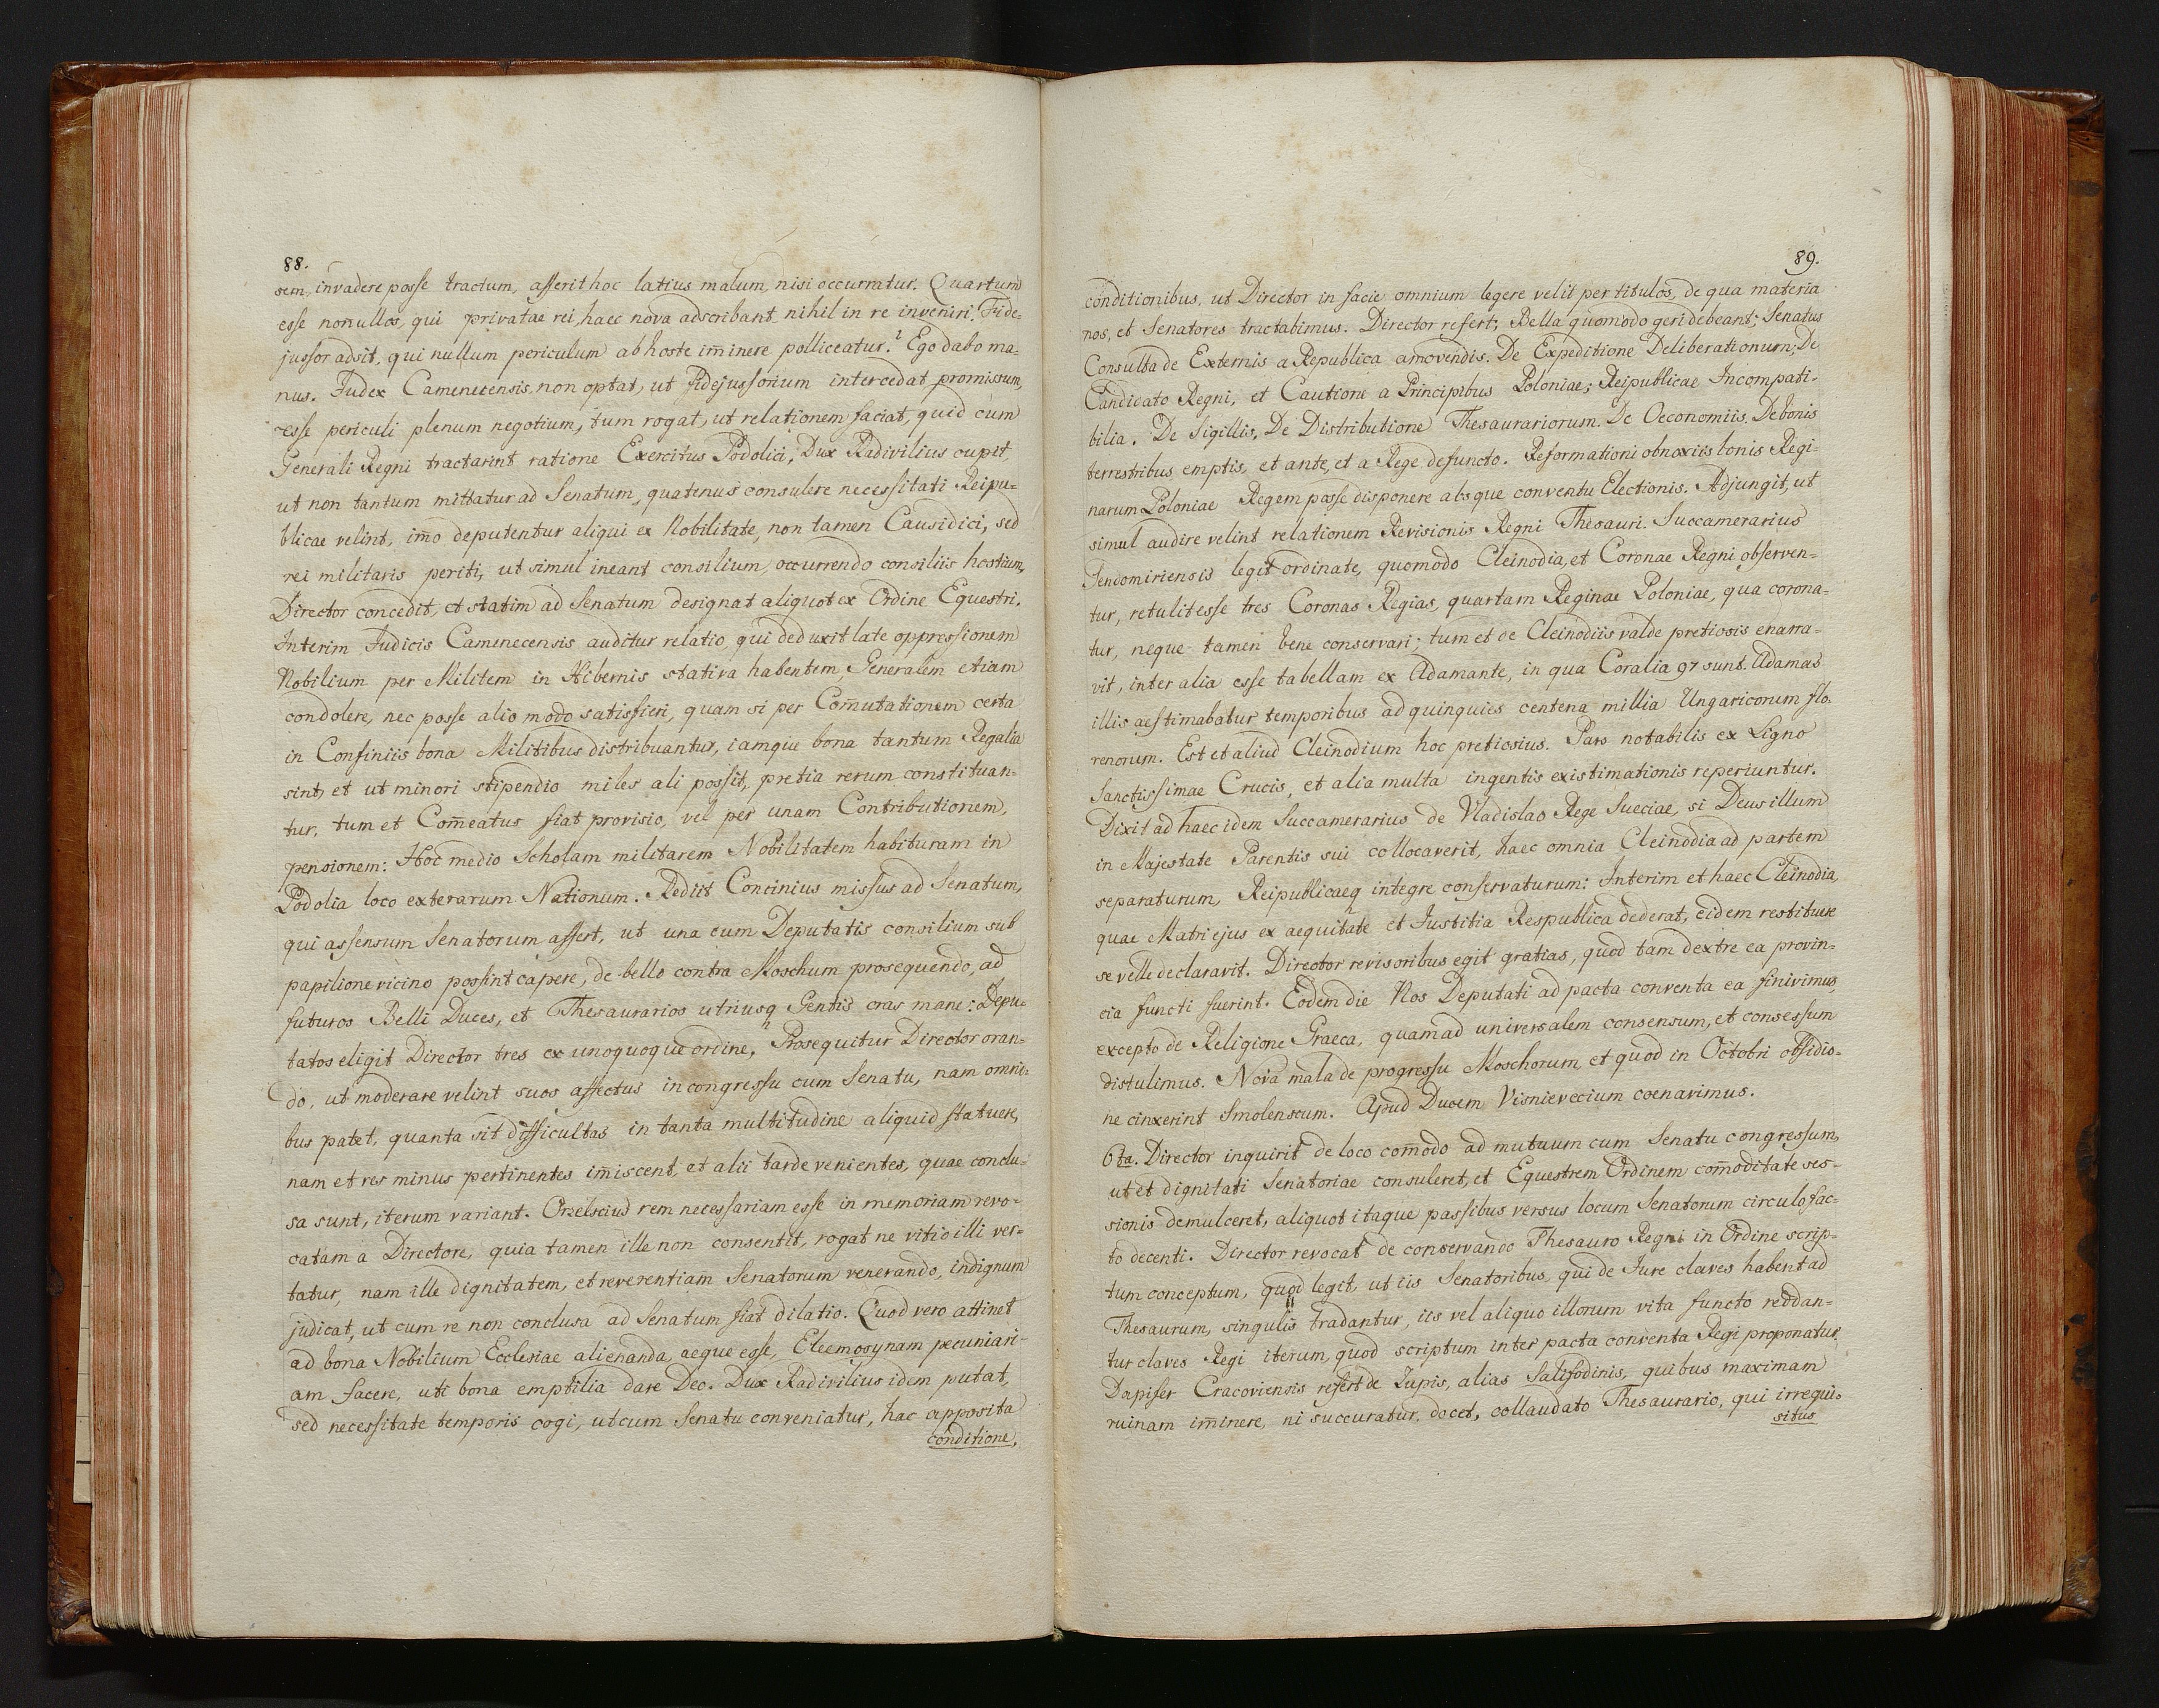 88.
sem, invadere posse tractum, asserit hoc latius malum, nisi occurratur. Quartum
esse nonullos, qui privatae rei, haec nova adscribant nihil in re inveniri. Fide-
jussor adsit, qui nullum periculum ab hoste im̄inere polliceatur? Ego dabo ma-
nus. Judex Camenecensis, non optat, ut fidejussorium intercedat promissum,
esse periculi plenum negotium, tum rogat, ut relationem faciat, quid cum
Generali Regni tractarint ratione Exercitus Podolici, Dux Radivilius cupit
ut non tantum mittatur ad Senatum, quatenus consulere necessitati Reipu-
blicae velint, im̄o deputentur aliqui ex Nobilitate, non tamen Causidici, sed
rei militaris periti, ut simul ineant consilium, occurrendo consiliis hostium,
Director concedit, et statim ad Senatum designat aliquot ex Ordine Equestri.
Interim Judicis Camenecensis auditur relatio, qui deduxit late oppressionem
Nobilium per Militem in Hibernis stativa habentem, Generalem etiam
condolere, nec posse alio modo satisfieri, quam si per Com̄utationem certa
in Confiniis bona Militibus distribuantur, iamque bona tantum Regalia
sint, et ut minori stipendio miles ali possit, pretia rerum constituan-
tur, tum et Com̄eatus fiat provisio, vel per unam Contributionem,
pensionem: Hoc medio Scholam militarem Nobilitatem habituram in
Podolia loco exterarum Nationum. Rediit Concinius missus ad Senatum,
qui assensum Senatorum affert, ut una cum Deputatis consilium sub
papilione vicino possint capere, de bello contra Moschum prosequendo, ad
futuros Belli Duces, et Thesaurarios utriusq Gentis cras mane: Depu-
tatos eligit Director tres ex unoquoque ordine, Prosequitur Director oran-
do, ut moderare velint suos affectus in congressu cum Senatu, nam omni-
bus patet, quanta sit difficultas in tanta multitudine aliquid statuere,
nam et res minus pertinentes im̄iscent, et alii tarde venientes, quae conclu-
sa sunt, iterum variant. Orzelscius rem necessariam esse in memoriam revo-
catam a Directore, quia tamen ille non consentit, rogat ne vitio illi ver-
tatur, nam ille dignitatem, et reverentiam Senatorum venerando, indignum
judicat, ut cum re non conclusa ad Senatum fiat dilatio. Quod vero attinet
ad bona Nobilium Ecclesiae alienanda, aeque esse, Eleemosynam pecuniari-
am facere, uti bona emptilia dare Deo. Dux Radivilius idem putat,
sed necessitate temporis cogi, ut cum Senatu conveniatur, hac apposita
conditione,
89.
conditionibus, ut Director in facie omnium legere velit per titulos, de qua materia
nos, et Senatores tractabimus. Director refert; Bella quomodo geri debeant; Senatus
Consulta de Externis a Republica amovendis. De Expeditione Deliberationum; De
Candidato Regni, et Cautione a Principibus Poloniae; Reipublicae Incompati-
bilia. De Sigillis, De Distributione Thesaurariorum. De Oeconomiis. De bonis
terrestribus emptis, et ante, et a Rege defuncto. Reformationi obnoxiis bonis Regi-
narum Poloniae Regem posse disponere absque conventu Electionis. Adjungit, ut
simul audire velint relationem Revisionis Regni Thesauri. Succamerarius
Sendomiriensis legit ordinate, quomodo Cleinodia, et Coronae Regni observen-
tur, retulit esse tres Coronas Regias, quartam Reginae Poloniae, qua corona-
tur, neque tamen bene conservari; tum et de Cleinodiis valde pretiosis enarra-
vit, inter alia esse tabellam ex Adamante, in qua Coralia 97 sunt. Adamas
illis aestimabatur temporibus ad quinquies centena millia Ungaricorum flo-
renorum. Est et aliud Cleinodium hoc pretiosius. Pars notabilis ex Ligno
Sanctissimae Crucis, et alia multa ingentis existimationis reperiuntur.
Dixit ad haec idem Succamerarius de Vladislao Rege Sueciae, si Deus illum
in Majestate Parentis sui collocaverit, haec omnia Cleinodia ad partem
separaturum, Reipublicaeq integre conservaturum: Interim et haec Cleinodia,
quae Matri ejus ex aequitate et Justitia Respublica dederat, eidem restituere
se velle declaravit. Director revisoribus egit gratias, quod tam dextre ea provin-
cia functi fuerint. Eodem die Nos Deputati ad pacta conventa ea finivimus,
excepto de Religione Graeca, quam ad universalem consensum, et consessum
distulimus. Nova mala de progressu Moschorum, et quod in Octobri obsidio-
ne cinxerint Smolenscum. Apud Ducem Visnievecium coenavimus.
6ta. Director inquirit de loco com̄odo ad mutuum cum Senatu congressum,
ut et dignitati Senatoriae consuleret, et Equestrem Ordinem com̄oditate ses-
sionis demulceret, aliquot itaque passibus versus locum Senatorum circulo fac-
to decenti. Director revocat de conservando Thesauro Regni in Ordine scrip-
tum conceptum, quod legit, ut iis Senatoribus, qui de Jure claves habent ad
Thesaurum, singulis tradantur, iis vel aliquo illorum vita functo reddan-
tur claves Regi iterum, quod scriptum inter pacta conventa Regi proponatur.
Dapifer Cracoviensis refert de Zupis, alias Salisfodinis, quibus maximam
ruinam im̄inere, ni succuratur, docet, collaudato Thesaurario, qui irrequi-
situs